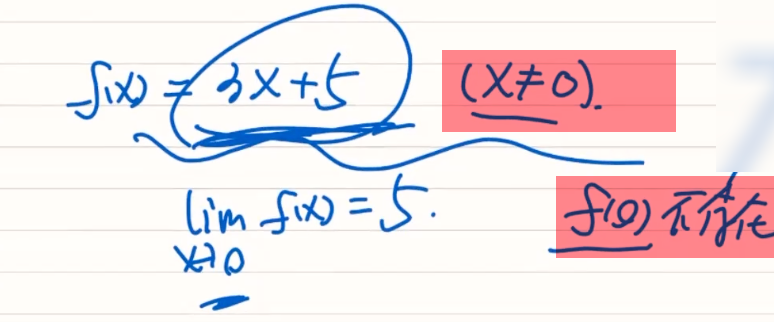 f(x) = 3x+5 (x≠0).
lim f(x) = 5. f(0) 不存在
x→0